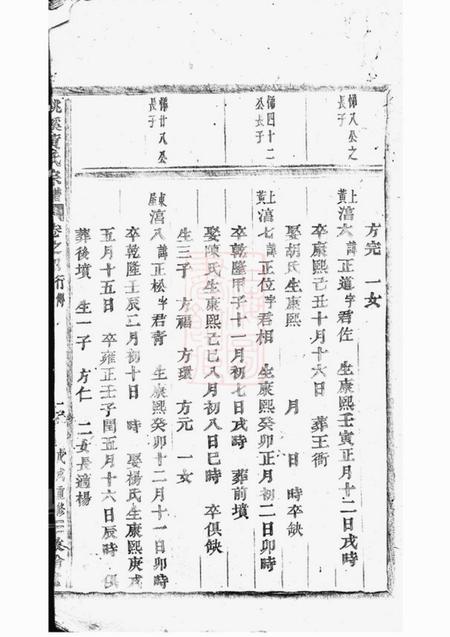 方完 一女
佛八公之
長子
上黃 濇六 諱正道字君佐 生康熙壬寅正月十二日戌時
卒康熙己丑十月十六日 葬王衙
娶胡氏生康熙 月 日 時卒缺
佛四十二
公長子
上黃 濇七 諱正位字君相 生康熙癸卯正月初二日卯時
卒乾隆甲子十一月初七日戌時 葬前墳
娶陳氏生康熙己巳八月初八日巳時 卒俱缺
生三子 方福 方環 方元 一女
佛廿八公
長子
東屋 濇八 諱正松字君青 生康熙癸卯十二月十一日卯時
卒乾隆壬辰二月初十日 時 娶楊氏生康熙庚戌
五月十五日 卒雍正壬子閏五月十六日辰時 俱
葬後墳 生一子 方仁 二女長適楊
氏宗譜 卷之 行傳 戊戌重修